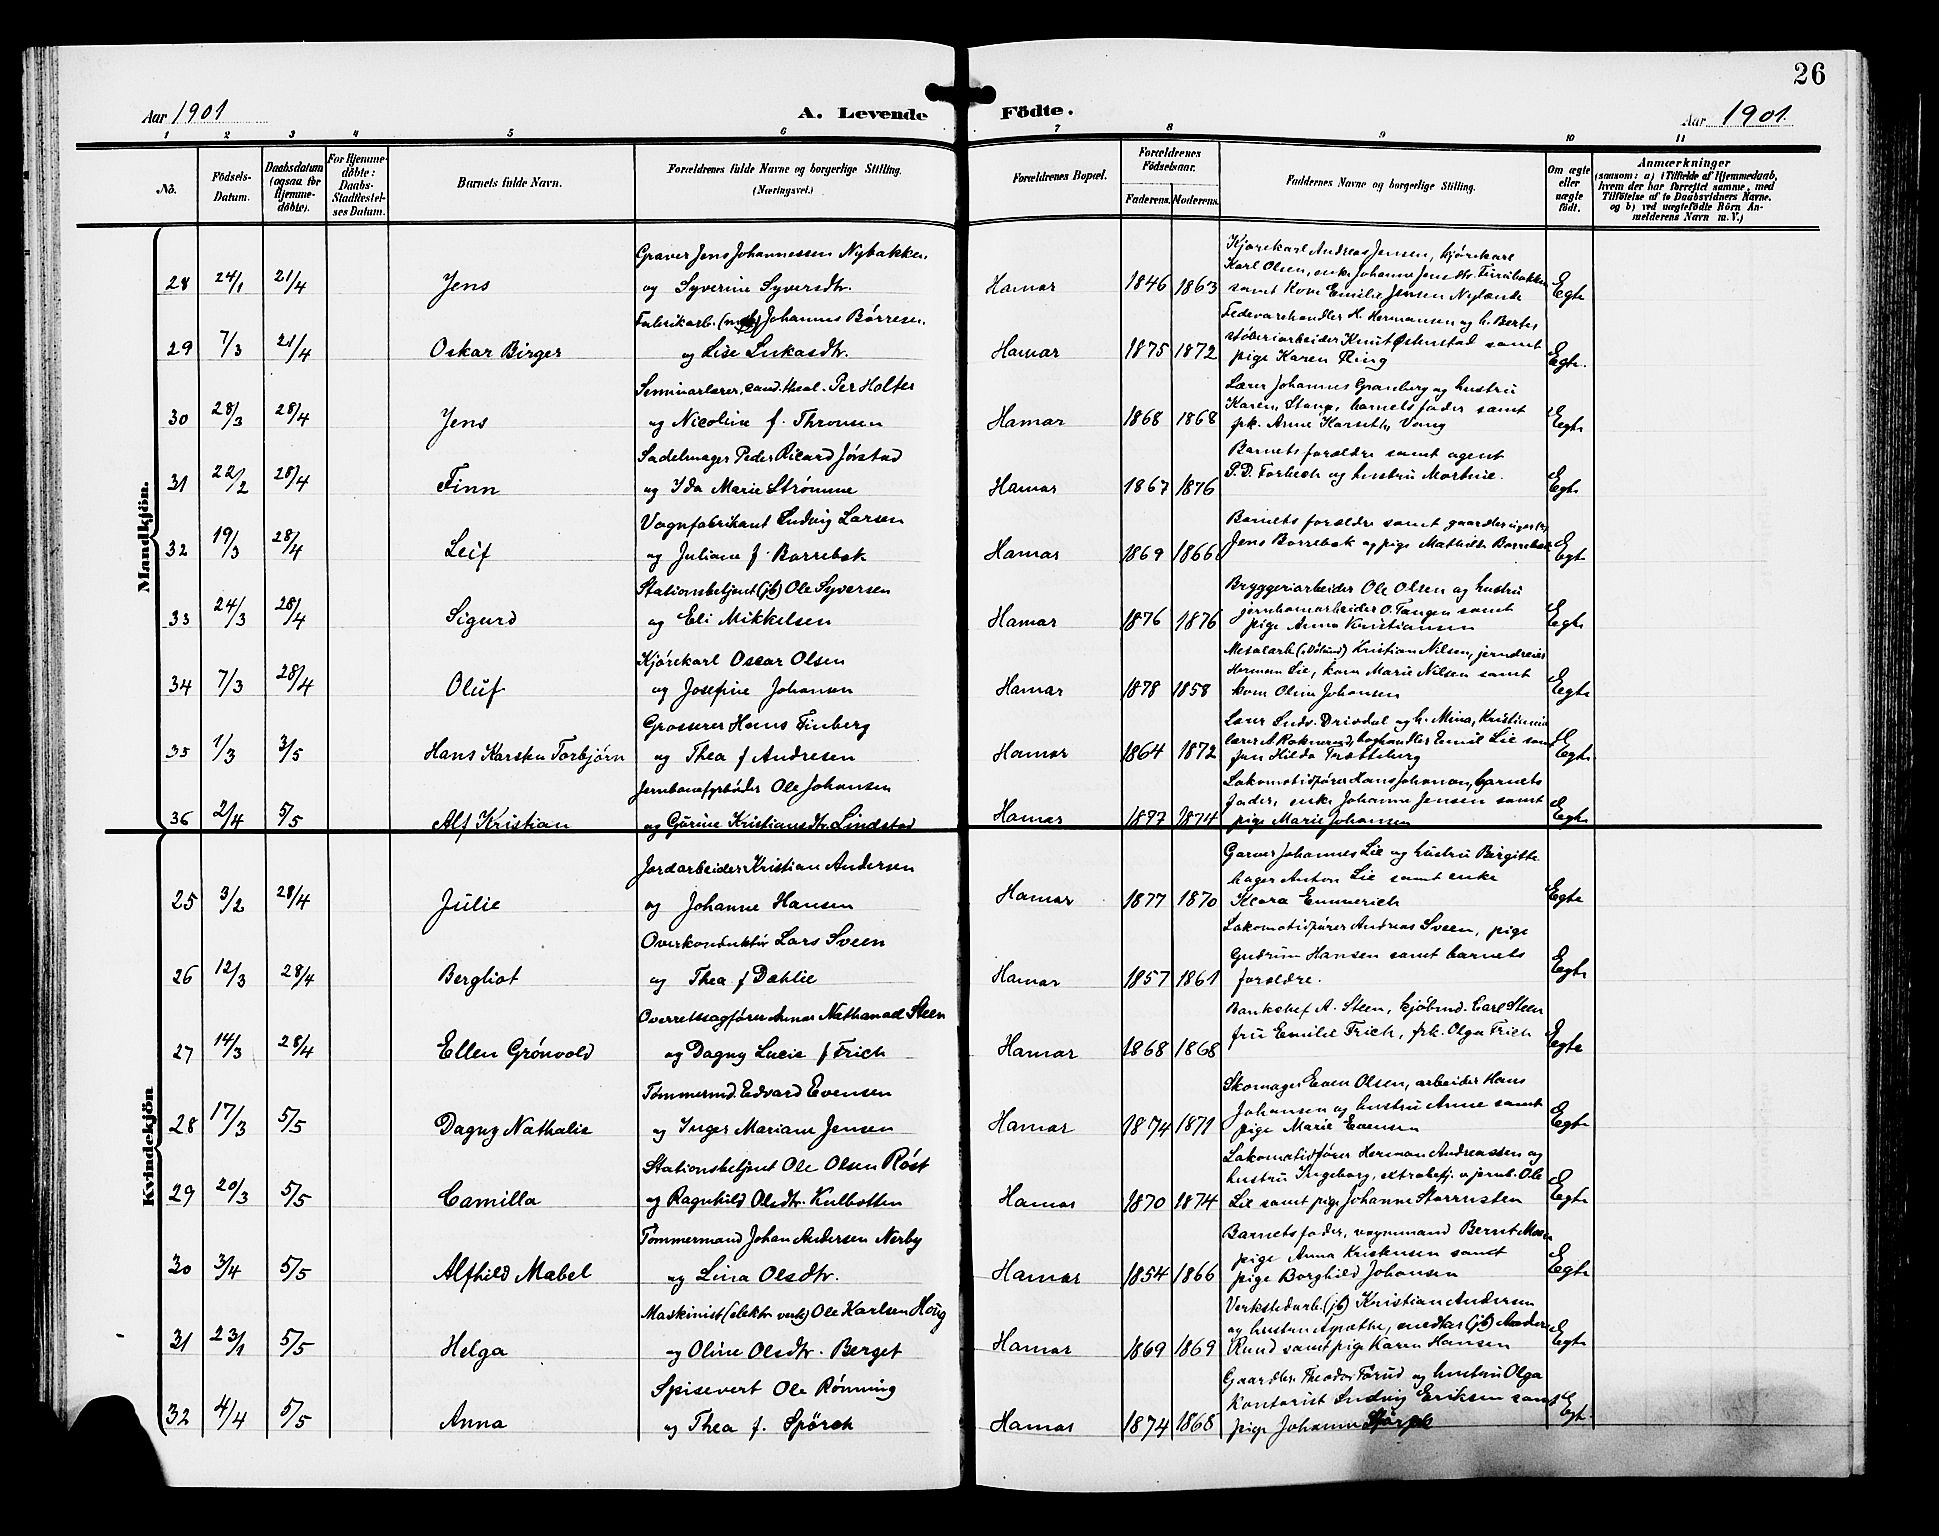 26
Aar 1901
A. Levende Födte.
Aar 1901
1 2 3 4 5 6 7 8 9 10 11
No.
Födsels-Datum.
Daabsdatum (ogsaa for Hjemme-döbte).
For Hjemme-döbte: Daabs-Stadfæstel-ses Datum.
Barnets fulde Navn.
Forældrenes fulde Navne og borgerlige Stilling. (Næringsvei.)
Forældrenes Bopæl.
Forældrenes Födselsaar.
Faderens. Moderens.
Faddernes Navne og borgerlige Stilling.
Om ægte eller uægte födt.
Anmærkninger
(saasom: a) i Tilfælde af Hjemmedaab, hvem der har forrettet samme, med Tilföielse af to Daabsvidners Navne. og b) ved uægtefödte Börn An-melderens Navn m. V.)
Mandkjön.
Graver Jens Johannessen Nybakken
28 24/1 21/4 Jens og Syverine Syversdtr. Hamar 1846 1863 Egte
Kjørekarl Andreas Jensen, kjørekarl
Karl Olsen, enke Johanne Jensdtr. Furubakken
samt Kone Emilie Jensen Nylænde
Fabrikarb. Johannes Børresen
29 7/3 21/4 Oskar Birger og Lise Lukasdtr. Hamar 1875 1872 Egte.
Fedevarehandler H. Hermansen og h. Berte,
støberiarbeider Knut Østenstad samt
pige Karen Ring
Seminarlærer, cand. theol. Per Holter
30 28/3 28/4 Jens og Nicoline f. Thronsen Hamar 1868 1868 Egte
Lærer Johannes Granberg og hustru
Karen, Stange, barnets fader samt
frk. Anne Karseth, Vang
Sadelmager Peder Ricard Jørstad
31 22/2 28/4 Finn og Ida Marie Strømme Hamar 1867 1876 Egte
Barnets forældre samt agent
P. D. Forbech og hustru Martine.
Vognfabrikant Ludvig Larsen
32 19/3 28/4 Leif og Juliane f. Borrebæk Hamar 1869 1866 Egte
Barnets forældre samt
Jens Borrebæk og pige Mathilde Borrebæk
Stationsbetjent (jb) Ole Syversen
33 24/3 28/4 Sigurd og Eli Mikkelsen Hamar 1876 1876 Egte
Bryggeriarbeider Ole Olsen og hustru
jernbanearbeider O. Tangen samt
pige Anna Kristiansen
Kjørekarl Oscar Olsen
34 7/3 28/4 Oluf og Josefine Johansen Hamar 1878 1858 Egte
Kristian Nilsen, jerndreier
Herman Lie, kone Marie Nilsen samt
kone Oline Johansen
Grosserer Hans Finberg
35 1/3 3/5 Hans Karsten Torbjørn og Thea f Andresen Hamar 1864 1872 Egte
Lærer Ludv. Drivdal og h. Mina, Kristiania
boghandler Emil Lie samt
frøken Hilda Trætteberg
Jernbanefyrbøder Ole Johansen
36 2/4 5/5 Alf Kristian og Gurine Kristiansdtr. Lindstad Hamar 1897 1874 Egte
Lokomotivfører Hans Johansen, barnets
fader, enke Johanne Jensen samt
pige Marie Johansen
Kvindekjön
Jordarbeider Kristian Andersen
25 3/2 28/4 Julie og Johanne Hansen Hamar 1877 1870 Egte
Garver Johannes Lie og hustru Birgitte
bager Anton Lie samt enke
Klara Emmerich
Overkonduktør Lars Sveen
26 12/3 28/4 Bergliot og Thea f Dahlie Hamar 1857 1861 Egte
Lokomotivfører Andreas Sveen, pige
Gudrun Hansen samt barnets
forældre.
Overretssagfører Nathanael Steen
27 14/3 28/4 Ellen Grönvold og Dagny Lucie f Frich Hamar 1868 1868 Egte
Bankchef A. Steen, kjöbmd. Carl Steen
fru Emilie Frich, frk. Olga Frich
Tømmermd. Edvard Evensen
28 17/3 5/5 Dagny Nathalie og Inger Mariane Jensen Hamar 1874 1871 Egte
Skomager Even Olsen, arbeider Hans
Johansen og hustru Anne samt
pige Marie Evensen
Stationsbetjent Ole Olsen Røst
29 20/3 5/5 Camilla og Ragnhild Olsdtr. Kulbotten Hamar 1870 1874 Egte
Lokomotivfører Herman Andreassen og
hustru Ingeborg, extrabetj. v. jernb. Ole
Lie samt pige Johanne
Tømmermand Johan Andersen Nerby
30 3/4 5/5 Alfhild Mabel og Lina Olsdtr. Hamar 1854 1866 Egte
Barnets fader, vognmand Bernt Moen
pige Anna Kristensen samt
pige Borghild Johansen
Maskinist (elektr. verk) Ole Karlsen Houg
31 23/1 5/5 Helga og Oline Olsdtr. Berget Hamar 1869 1869 Egte
Verkstedarb. (jb) Kristian Andersen
og hustru Agathe,
Rund samt pige Karen Hansen
Spisevert Ole Rønning
32 4/4 5/5 Anna og Thea f. Spörck Hamar 1874 1868 Egte
Gaardbr. Theodor Forud og hustru Olga
Kontorist Ludvig Eriksen samt
pige Johanne